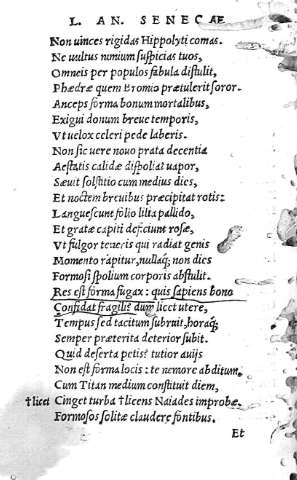 L. AN. SENECAE
Non uinces rigidas Hippolyti comas.
Ne uultus nimium suspicias tuos,
Omneis per populos fabula distulit,
Phædræ quem Bromio prætulerit soror.
Anceps forma bonum mortalibus,
Exigui donum breue temporis,
Vt uelox celeri pede laberis.
Non sic uere nouo prata decentia
Aestatis calidæ dispoliat uapor,
Sæuit solstitio cum medius dies,
Et noctem breuibus præcipitat rotis:
Languescunt folio lilia pallido,
Et gratæ capiti deficiunt rosæ,
Vt fulgor teneris qui radiat genis
Momento rapitur, nullaq; non dies
Formosi spolium corporis abstulit.
Res est forma fugax: quis sapiens bono
Confidat fragili? dum licet utere,
Tempus sed tacitum subruit, horaq;
Semper præterita deterior subit.
Quid deserta petis? tutior auijs
Non est forma locis: te nemore abditum,
Cum Titan medium constituit diem,
†licēs Cinget turba †licens Naiades improbæ,
Formosos solitæ claudere fontibus.
Et